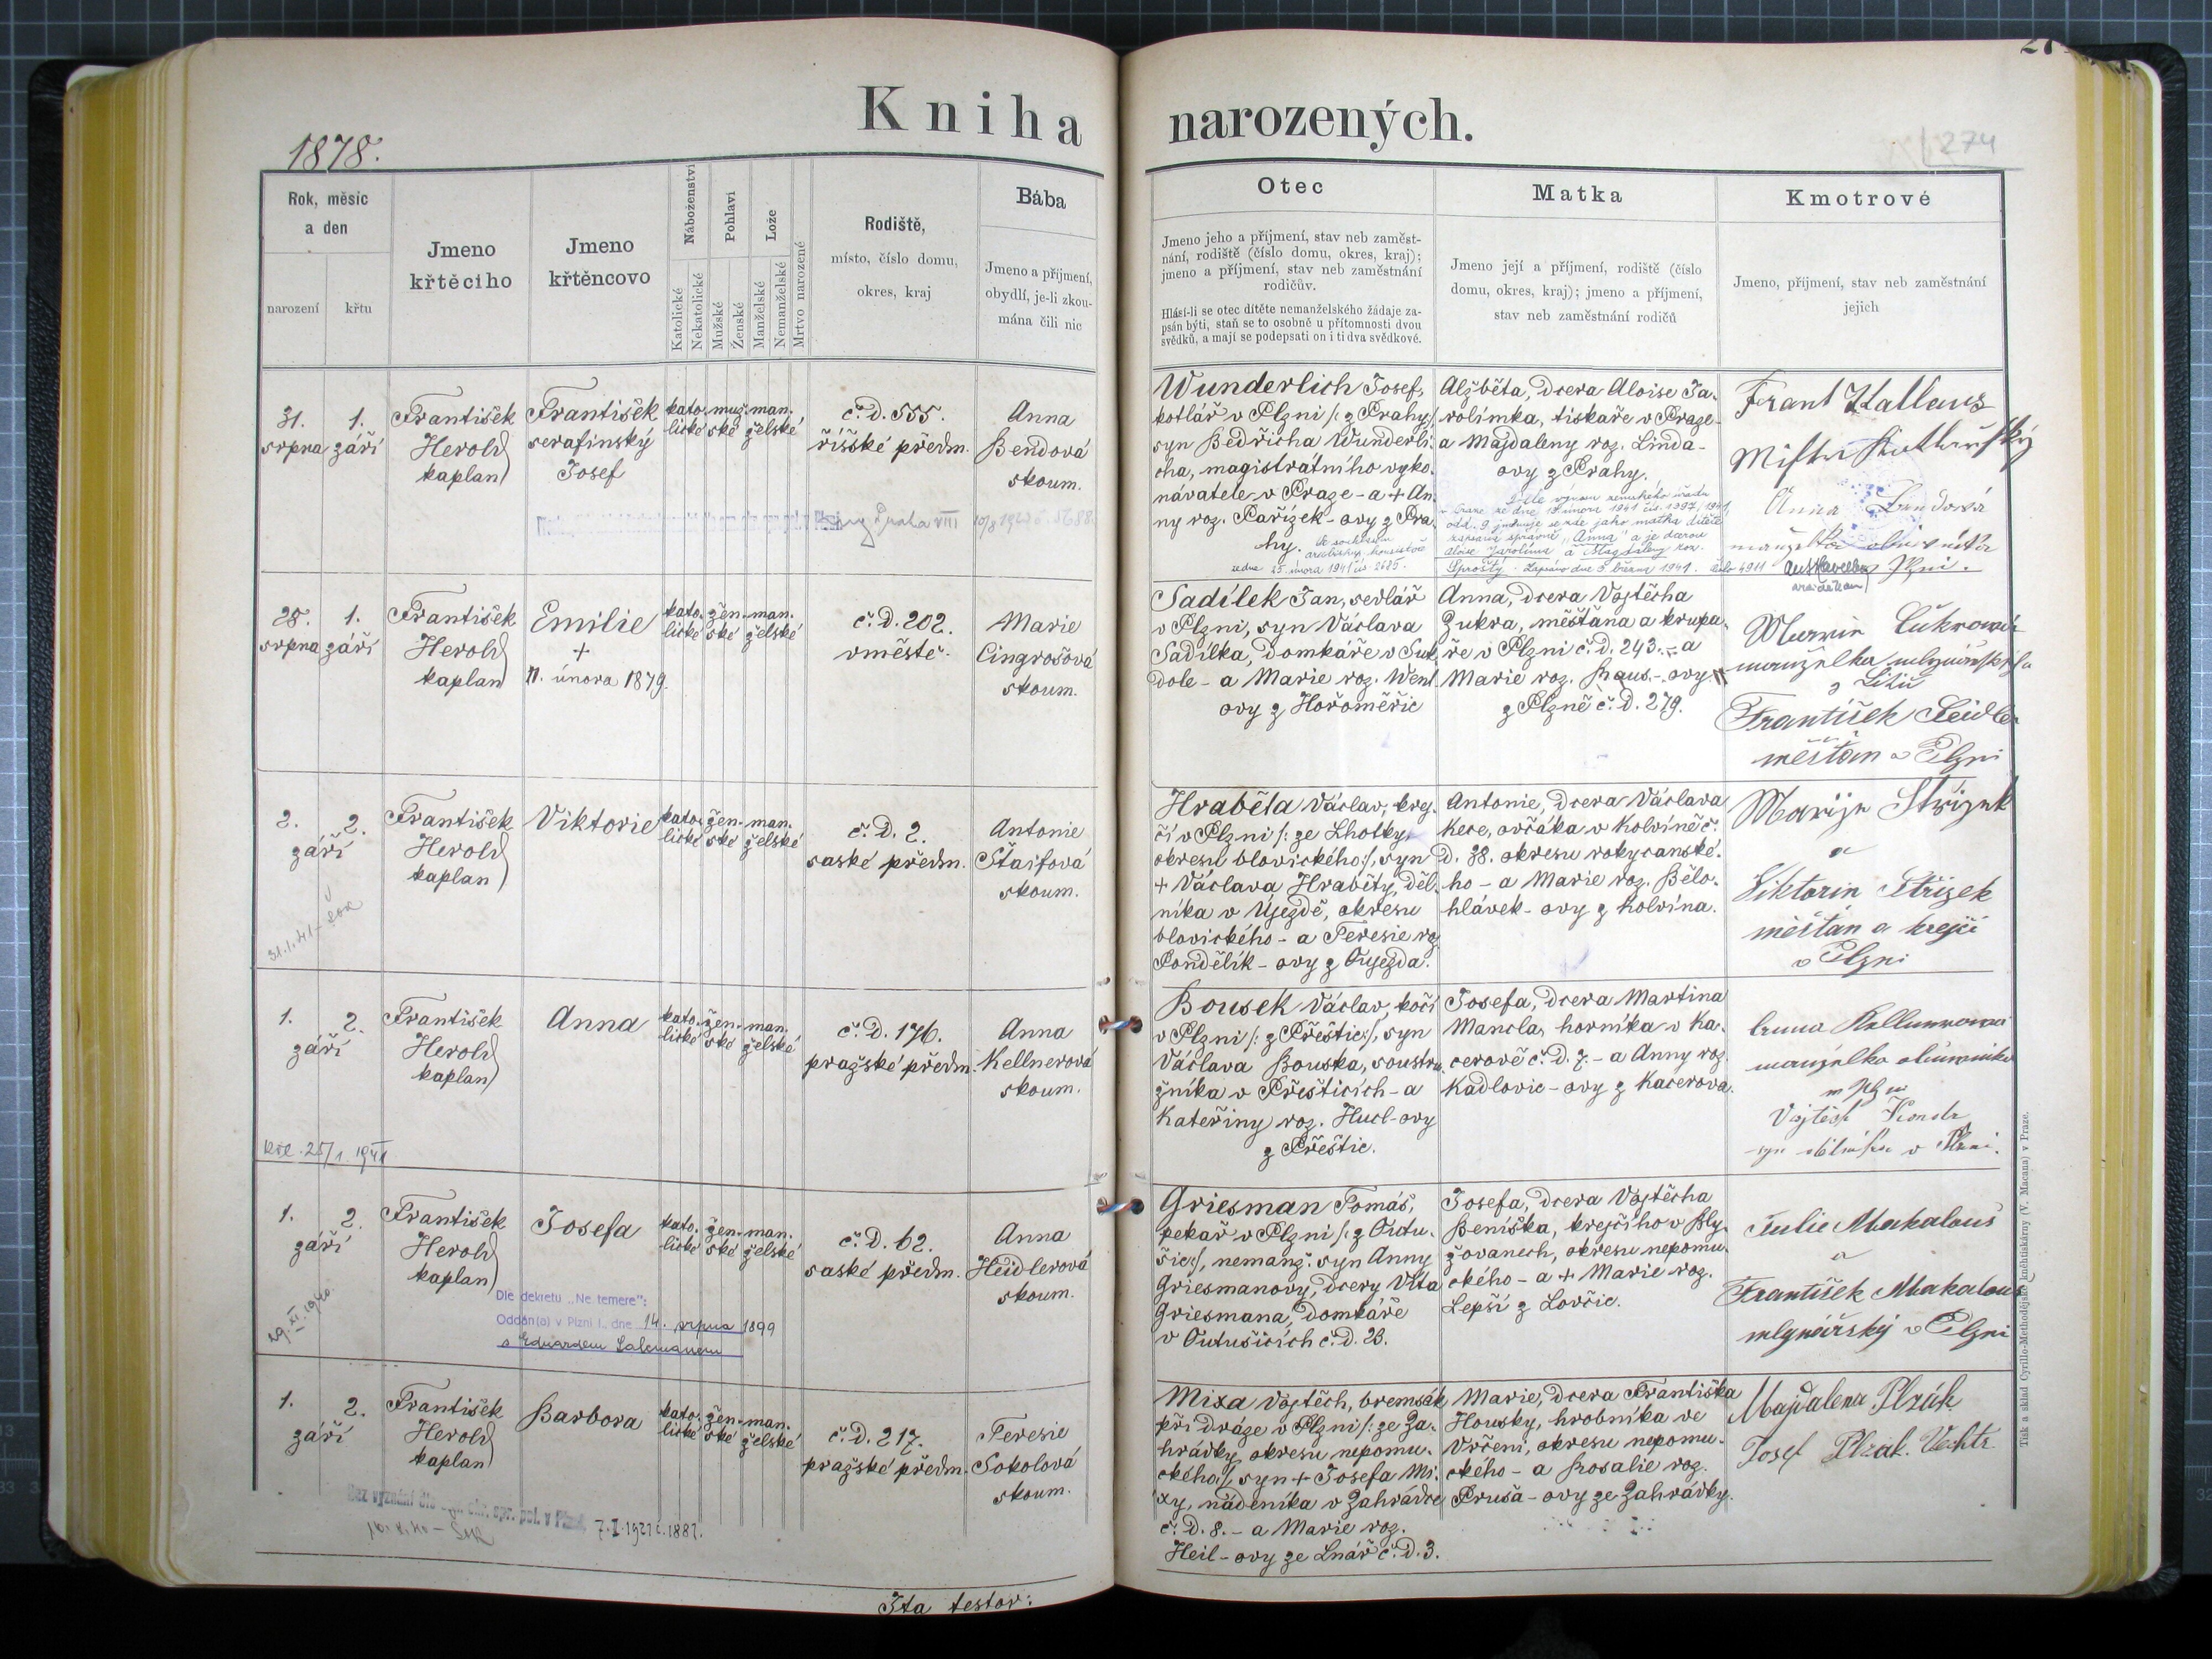 Kniha narozených.
1878.
274
Rok, měsíc
a den
narození
křtu
Jmeno
křtěcího
Jmeno
křtěncovo
Náboženství
Katolické
Nekatolické
Pohlaví
Mužské
Ženské
Lože
Manželské
Nemanželské
Mrtvo narozené
Rodiště,
místo, číslo domu,
okres, kraj
Bába
Jmeno a příjmení,
obydlí, je-li zkou-
mána čili nic
Otec
Jmeno jeho a příjmení, stav neb zaměst-
nání, rodiště (číslo domu, okres, kraj);
jmeno a příjmení, stav neb zaměstnání
rodičův.
Hlásí-li se otec dítěte nemanželského žádaje za-
psán býti, staň se to osobně u přítomnosti dvou
svědků, a mají se podepsati on i ti dva svědkové.
Matka
Jmeno její a příjmení, rodiště (číslo
domu, okres, kraj); jmeno a příjmení,
stav neb zaměstnání rodičů
Kmotrové
Jmeno, příjmení, stav neb zaměstnání
jejich
31.
srpna
1.
září
František
Herold
kaplan
František
serafinský
Josef
kato-
lické
muž-
ské
man-
želské
č. D. 555.
říšské předm.
Anna
Bendová
skoum.
Praha VIII
Wunderlich Josef,
kotlář v Plzni /: z Prahy :/
syn Bedřicha Wunderli-
cha, magistrátního vyko-
návatele v Praze - a + An-
ny roz. Pařízek - ovy z Pra-
hy.
ze dne 25. února 1941 čís. 2685.
Alžběta, dcera Aloise Ja-
rolímka, tiskaře v Praze -
a Majdaleny roz. Linda-
ovy z Prahy.
zapsána správně "Anna" a je dcerou
Aloise Jarolíma a Magdaleny roz.
Zapsáno dne 5. března 1941. číslo 4911
Frant Kallaus
Anna
28.
srpna
1.
září
František
Herold
kaplan
Emilie
+
11. února 1879.
kato-
lické
žen-
ské
man-
želské
č. D. 202.
v městě.
Marie
Cingrošová
skoum.
Sadílek Jan, sedlář
v Plzni, syn Václava
Sadílka, domkáře v Suk
dole - a Marie roz. Wentl
ovy z Hořoměřic
Anna, dcera Vojtěcha
Zukra, měštána a krupa-
ře v Plzni č. D. 243. - a
Marie roz. Kraus. - ovy
z Plzně č. D. 279.
manželka
z Litic
František
měšťan v Plzni
2.
září
2.
František
Herold
kaplan
Viktorie
kato-
lické
žen-
ské
man-
želské
č. D. 2.
saské předm.
Antonie
Štaifová
skoum.
31.I.41
Hraběta Václav, krej-
čí v Plzni /: ze Lhotky,
okresu blovického :/, syn
+ Václava Hraběty, děl-
níka v Újezdě, okresu
blovického - a Teresie roz
Pondělík - ovy z Oujezda.
Antonie, dcera Václava
Kece, ovčáka v Kolvíně č.
D. 38. okresu rokycanské-
ho - a Marie roz. Bělo-
hlávek - ovy z Kolvína.
a
Viktorin Střízek
měšťan a krejčí
v Plzni
1.
září
2.
František
Herold
kaplan
Anna
kato-
lické
žen-
ské
man-
želské
č. D. 176.
pražské předm.
Anna
Kellnerová
skoum.
25/1. 1941
Bousek Václav, kočí
v Plzni /: z Přeštic :/, syn
Václava Bouska, soustru-
žníka v Přešticích - a
Kateřiny roz. Hucl - ovy
z Přeštic.
Josefa, dcera Martina
Mancla, horníka v Ka-
cerově č. D. 7. - a Anny roz.
Kadlovic - ovy z Kacerova.
manželka
Vojtěch
v Plzni.
1.
září
2.
František
Herold
kaplan
Josefa
kato-
lické
žen-
ské
man-
želské
č. D. 62.
saské předm.
Anna
Heidlerová
skoum.
29. XI. 1940.
Dle dekretu „Ne temere":
Oddán(a) v Plzni I., dne 14. srpna 1899
s Eduardem
Griesman Tomáš,
pekař v Plzni /: z Outu-
šic :/, nemanž. syn Anny
Griesmanovy, dcery Víta
Griesmana, domkáře
v Outušicích č. D. 23.
Josefa, dcera Vojtěcha
Beníška, krejčího v Bly-
žovanech, okresu nepomu-
ckého - a + Marie roz.
Lepší z Lovčic.
Julie Makalous
a
František Makalous
mlynářský v Plzni
1.
září
2.
František
Herold
kaplan
Barbora
kato-
lické
žen-
ské
man-
želské
č. D. 217.
pražské předm.
Teresie
Sokolová
skoum.
Bez vyznání dle
pol. v Plzni, 7.I.1921 č. 1887.
Mixa Vojtěch, bremsák
při dráze v Plzni /: ze Za-
hrádky okresu nepomu-
ckého :/ syn + Josefa Mi-
xy, nádeníka v Zahrádce
č. D. 8. - a Marie roz.
Heil - ovy ze Lnář č. D. 3.
Marie, dcera Františka
Housky, hrobníka ve
Vrčeni, okresu nepomu-
ckého - a Rosalie roz.
Pruša - ovy ze Zahrádky.
Majdalena Plzák
Josef Plzak
Ita testor:
Tisk a sklad Cyrillo-Methodějské knihtiskárny (V. Macana) v Praze.